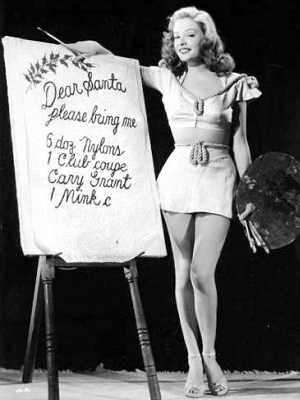 Dear Santa
please bring me
6 doz Nylons
1 Club coupe
Cary Grant
1 Mink c